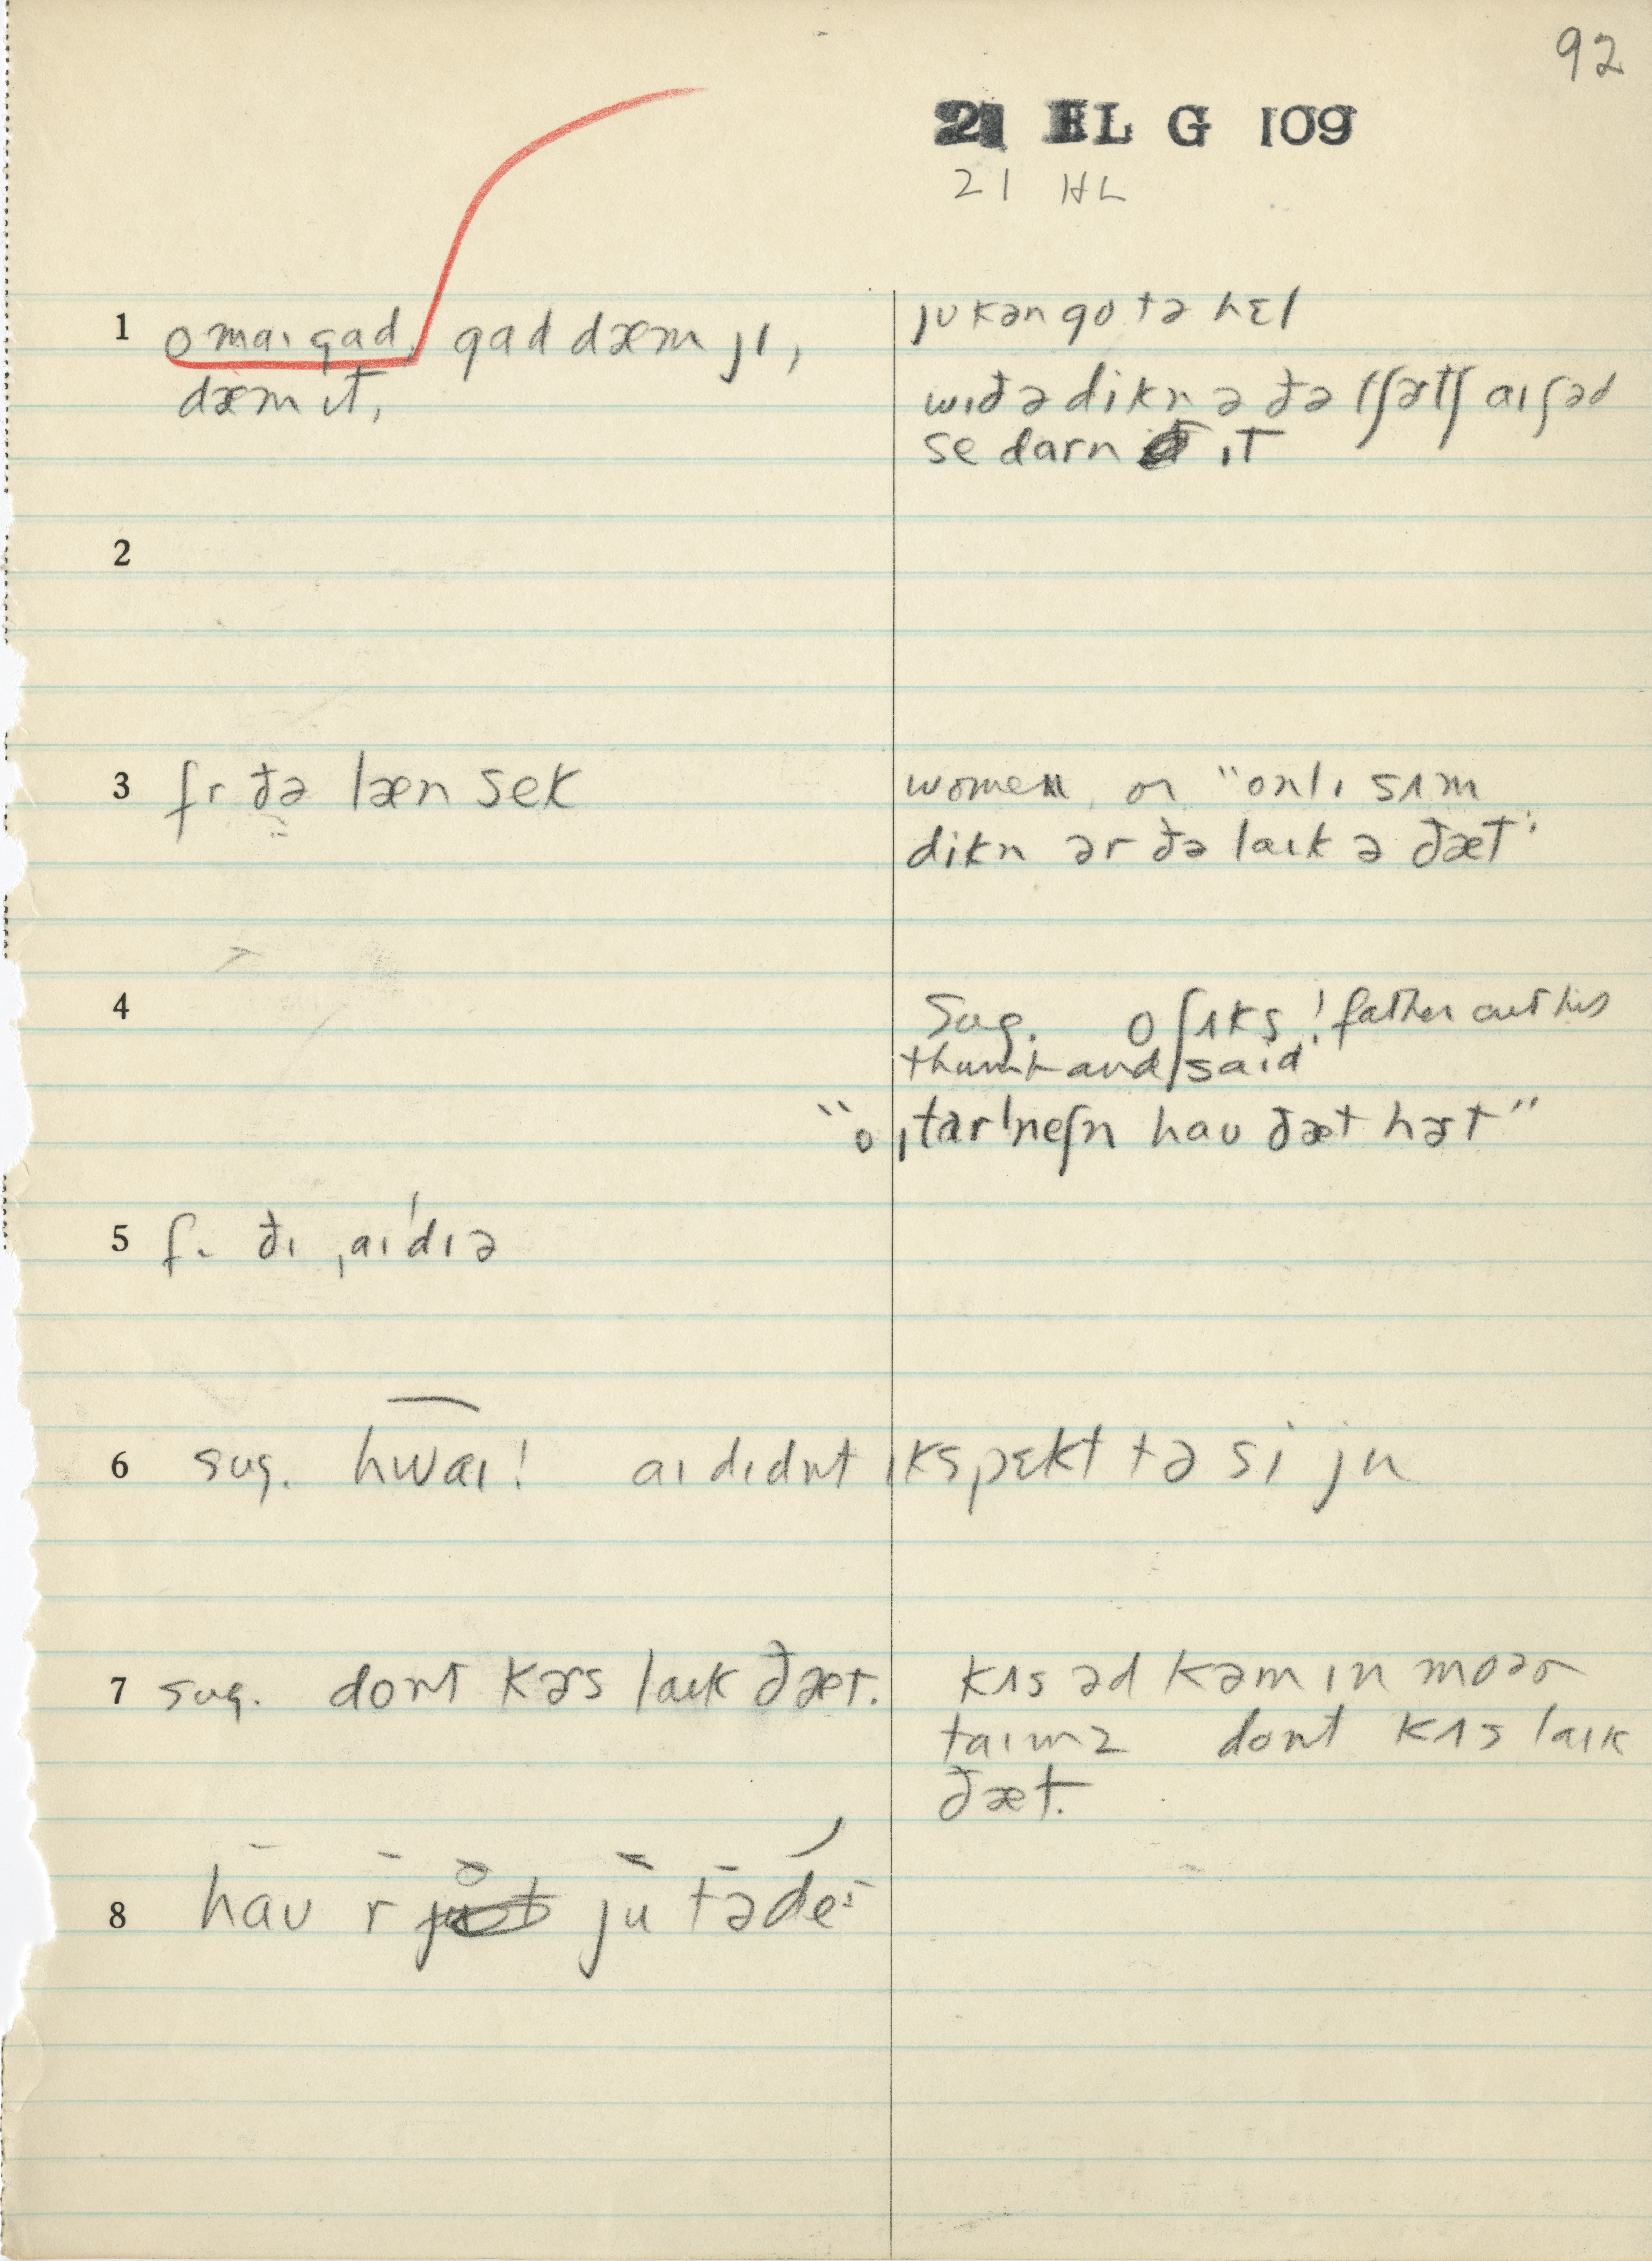 92
21 EL G 109
21 HL
1 o maɪ gad, gad dæm jɪ,
dæm ɪt,
jʊ kən go tə hɛl
wɪð ə dikn ə ðə tʃɚtʃ aɪ ʃəd
se darn ɪt
2
3 fr ðə læn sek
women or "onlɪ sʌm
dikn ər ðə laɪk ə ðæt"
4 Sug. o ʃʌks! father cut his
thumb and said
"o ˌtarˈneʃn haʊ ðæt hɚt"
5 fr ðɪ ˌaɪˈdɪə
6 sug. hwaɪ! aɪ dɪdnt ɪkspɛkt tə si ju
7 sug. dont kɚs laɪk ðæt.
kʌs əd kəm ɪn moɚ
taɪmz dont kʌs laɪk
ðæt.
8 haʊ r ju tə de